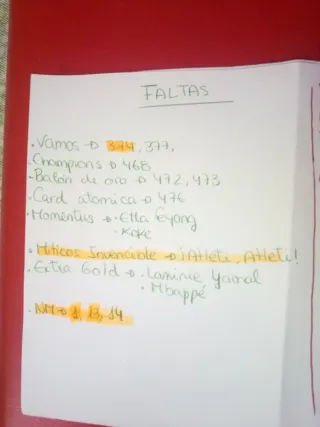 FALTAS
· Vamos → 374, 377,
· Champions → 468
· Balón de oro → 472, 473
· Card atomica → 476
· Momentus → · Etta Eyong
· Koke
· Míticos Invencible → ¡Atleti, Atleti!
· Extra Gold → · Lamine Yamal
· Mbappé
· NM → 1, 13, 14